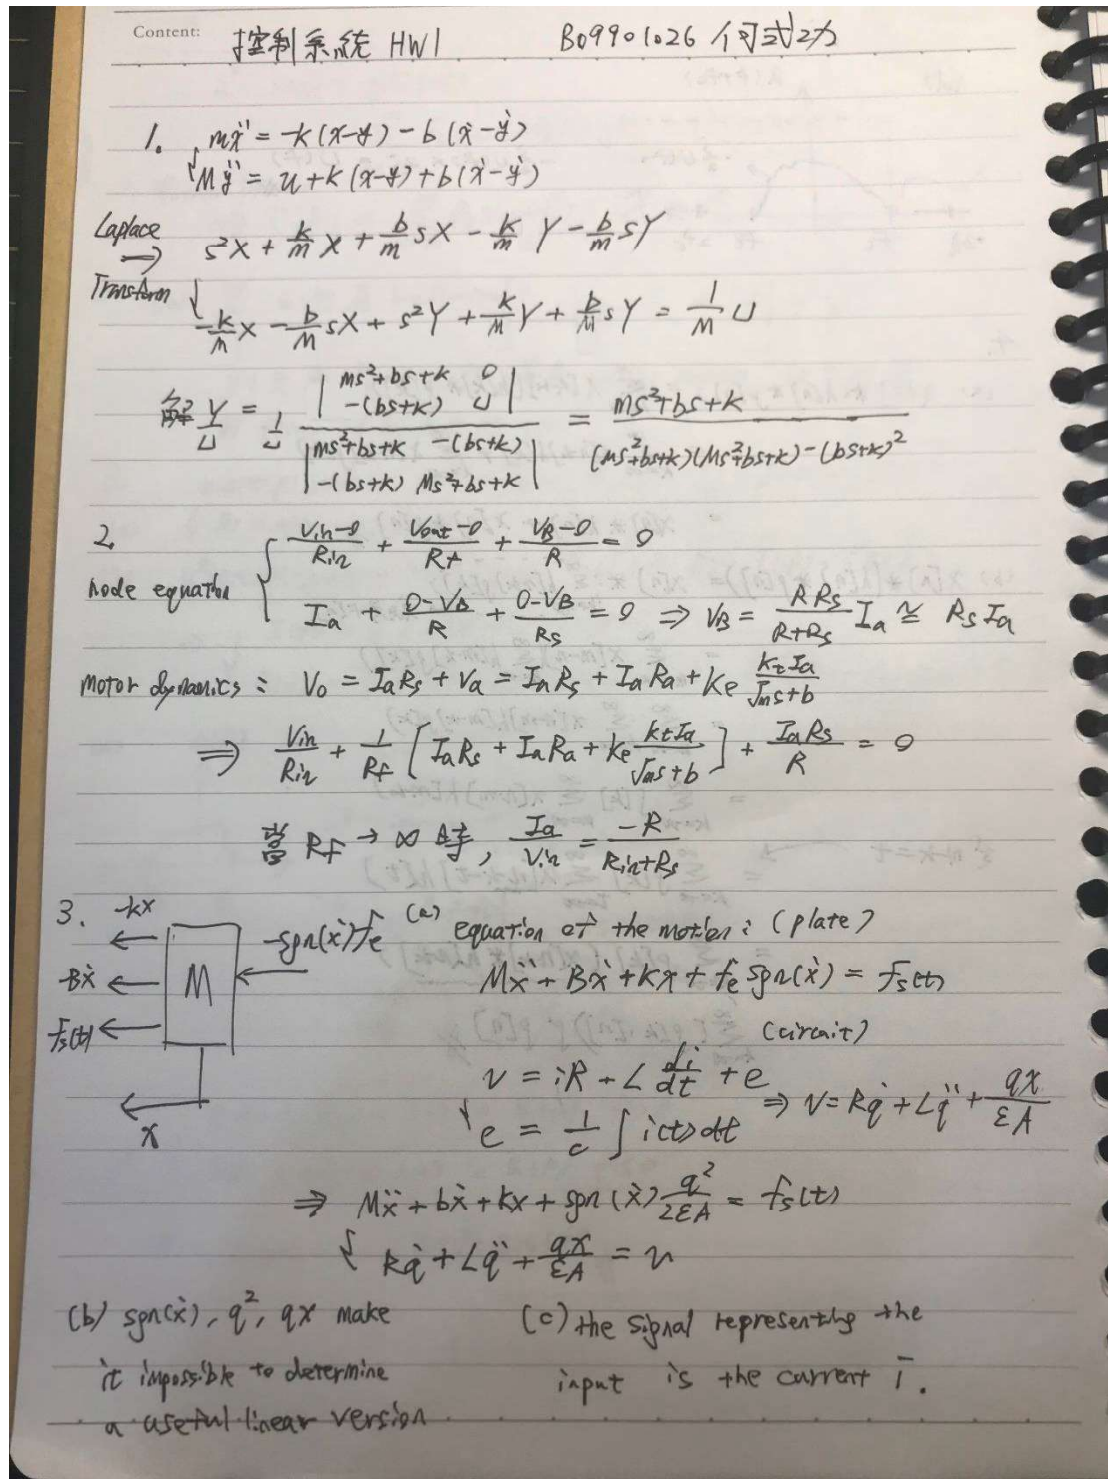 Content: 控制系統 HW1 B09901026 何式功
1. mẍ = -k(x-y) - b(ẋ-ẏ)
Mÿ = u + k(x-y) + b(ẋ-ẏ)
Laplace ⇒ Transform s²X + k/m X + b/m sX - k/m Y - b/m sY
-k/M X - b/M sX + s²Y + k/M Y + b/M sY = 1/M U
解 Y/U = 1/U |ms²+bs+k 0; -(bs+k) U| / |ms²+bs+k -(bs+k); -(bs+k) Ms²+bs+k| = (ms²+bs+k) / ((ms²+bs+k)(Ms²+bs+k) - (bs+k)²)
2.
node equation { (Vin-0)/Rin + (Vout-0)/Rf + (VB-0)/R = 0
Ia + (0-VB)/R + (0-VB)/Rs = 0 ⇒ VB = R Rs/(R+Rs) Ia ≅ Rs Ia
Motor dynamics: Vo = IaRs + Va = IaRs + IaRa + Ke KtIa/(Jms+b)
⇒ Vin/Rin + 1/Rf [IaRs + IaRa + Ke KtIa/(Jms+b)] + IaRs/R = 0
當 Rf → ∞ 時, Ia/Vin = -R/(Rin+Rs)
3. (a) equation of the motion: (plate)
-kx
-Bẋ
fs(t)
M
-sgn(ẋ)fe
x
Mẍ + Bẋ + kx + fe sgn(ẋ) = fs(t)
(circuit)
v = iR + L di/dt + e
e = 1/c ∫ i(t) dt ⇒ v = Rq̇ + Lq̈ + qx/εA
⇒ Mẍ + bẋ + kx + sgn(ẋ) q²/2εA = fs(t)
Rq̇ + Lq̈ + qx/εA = v
(b) sgn(ẋ), q², qx make
it impossible to determine
a useful linear version
(c) the signal representing the
input is the current i.